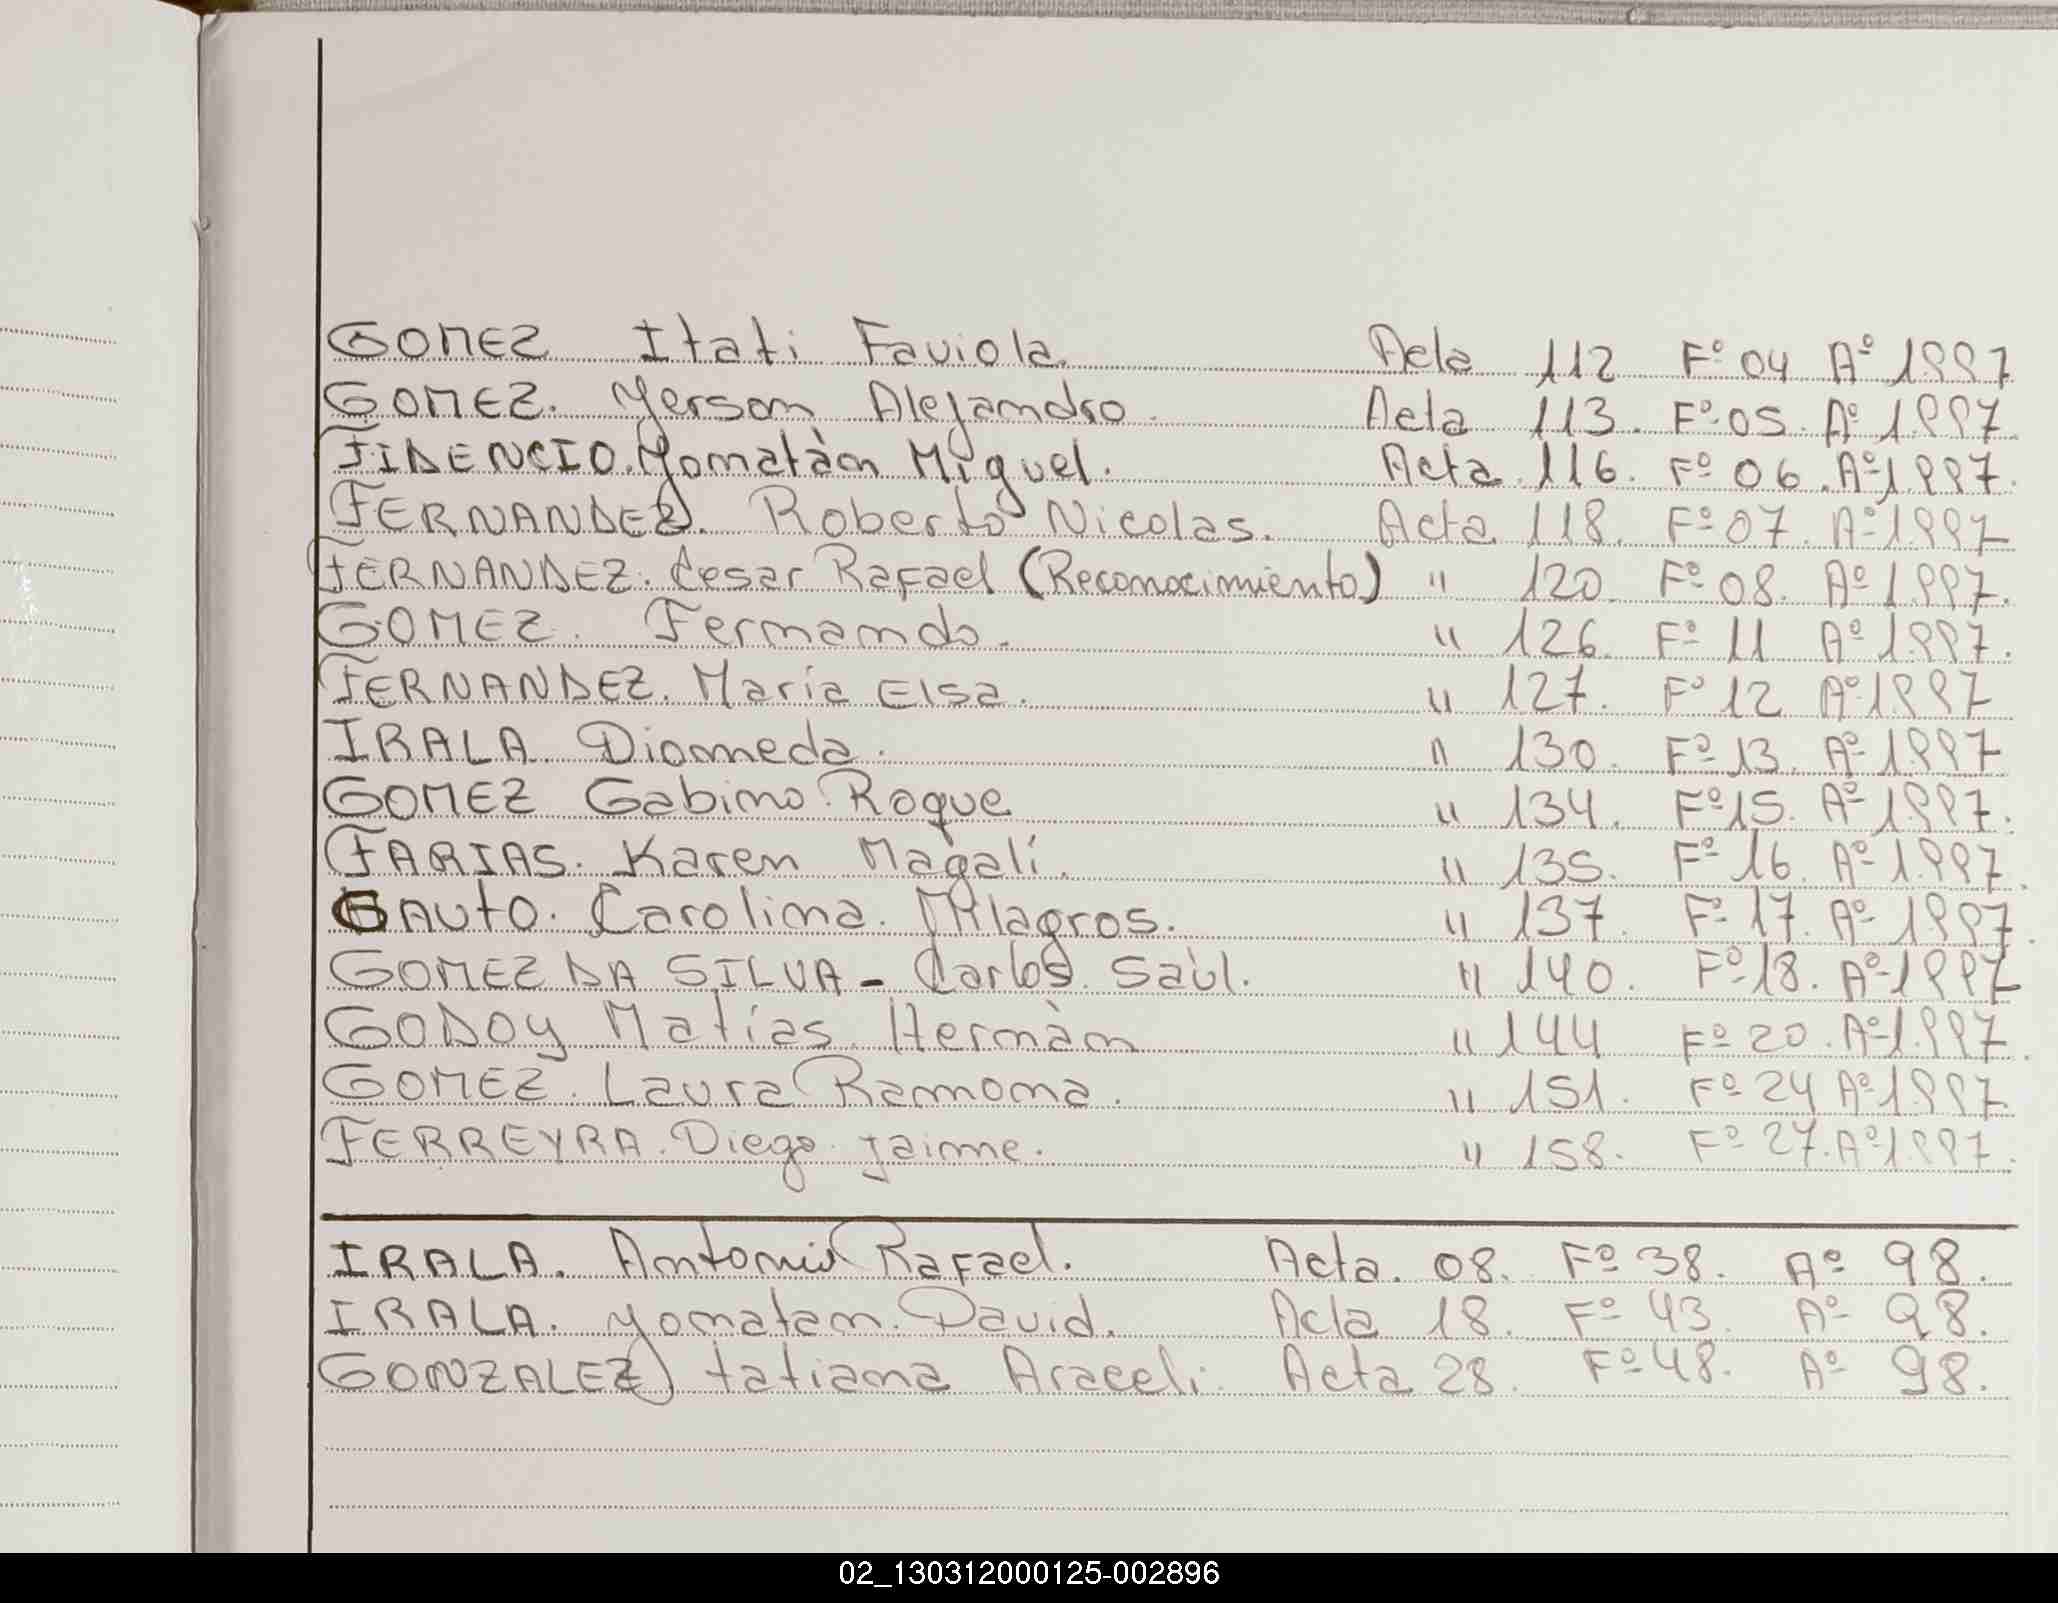 GOMEZ Itati Faviola. Acta 112 Fº 04 Aº 1997
GOMEZ. Yerson Alejandro. Acta 113. Fº 05. Aº 1997.
FIDENCIO. Yonatàn Miguel. Acta. 116. Fº 06. Aº 1997.
FERNANDEZ. Roberto Nicolas. Acta. 118. Fº 07. Aº 1997
FERNANDEZ. Cesar Rafael (Reconocimiento) " 120. Fº 08. Aº 1997.
GOMEZ. Fernando. " 126. Fº 11 Aº 1997.
FERNANDEZ. María Elsa. " 127. Fº 12 Aº 1997
IRALA. Diomeda. " 130. Fº 13. Aº 1997
GOMEZ Gabino Roque " 134. Fº 15. Aº 1997.
FARIAS. Karen Magalí. " 135. Fº 16. Aº 1997.
GAUTO. Carolina. Milagros. " 137. Fº 17. Aº 1997.
GOMEZ DA SILVA - Carlos. Saùl. " 140. Fº 18. Aº 1997
GODOY Matías. Hernàn " 144 Fº 20. Aº 1997.
GOMEZ. Laura Ramona. " 151. Fº 24 Aº 1997
FERREYRA. Diego Jaime. " 158. Fº 27. Aº 1997.
IRALA. Antonio Rafael. Acta. 08. Fº 38. Aº 98.
IRALA. Yonatan. David. Acta 18. Fº 43. Aº 98.
GONZALEZ tatiana Araceli. Acta 28. Fº 48. Aº 98.
02_130312000125-002896